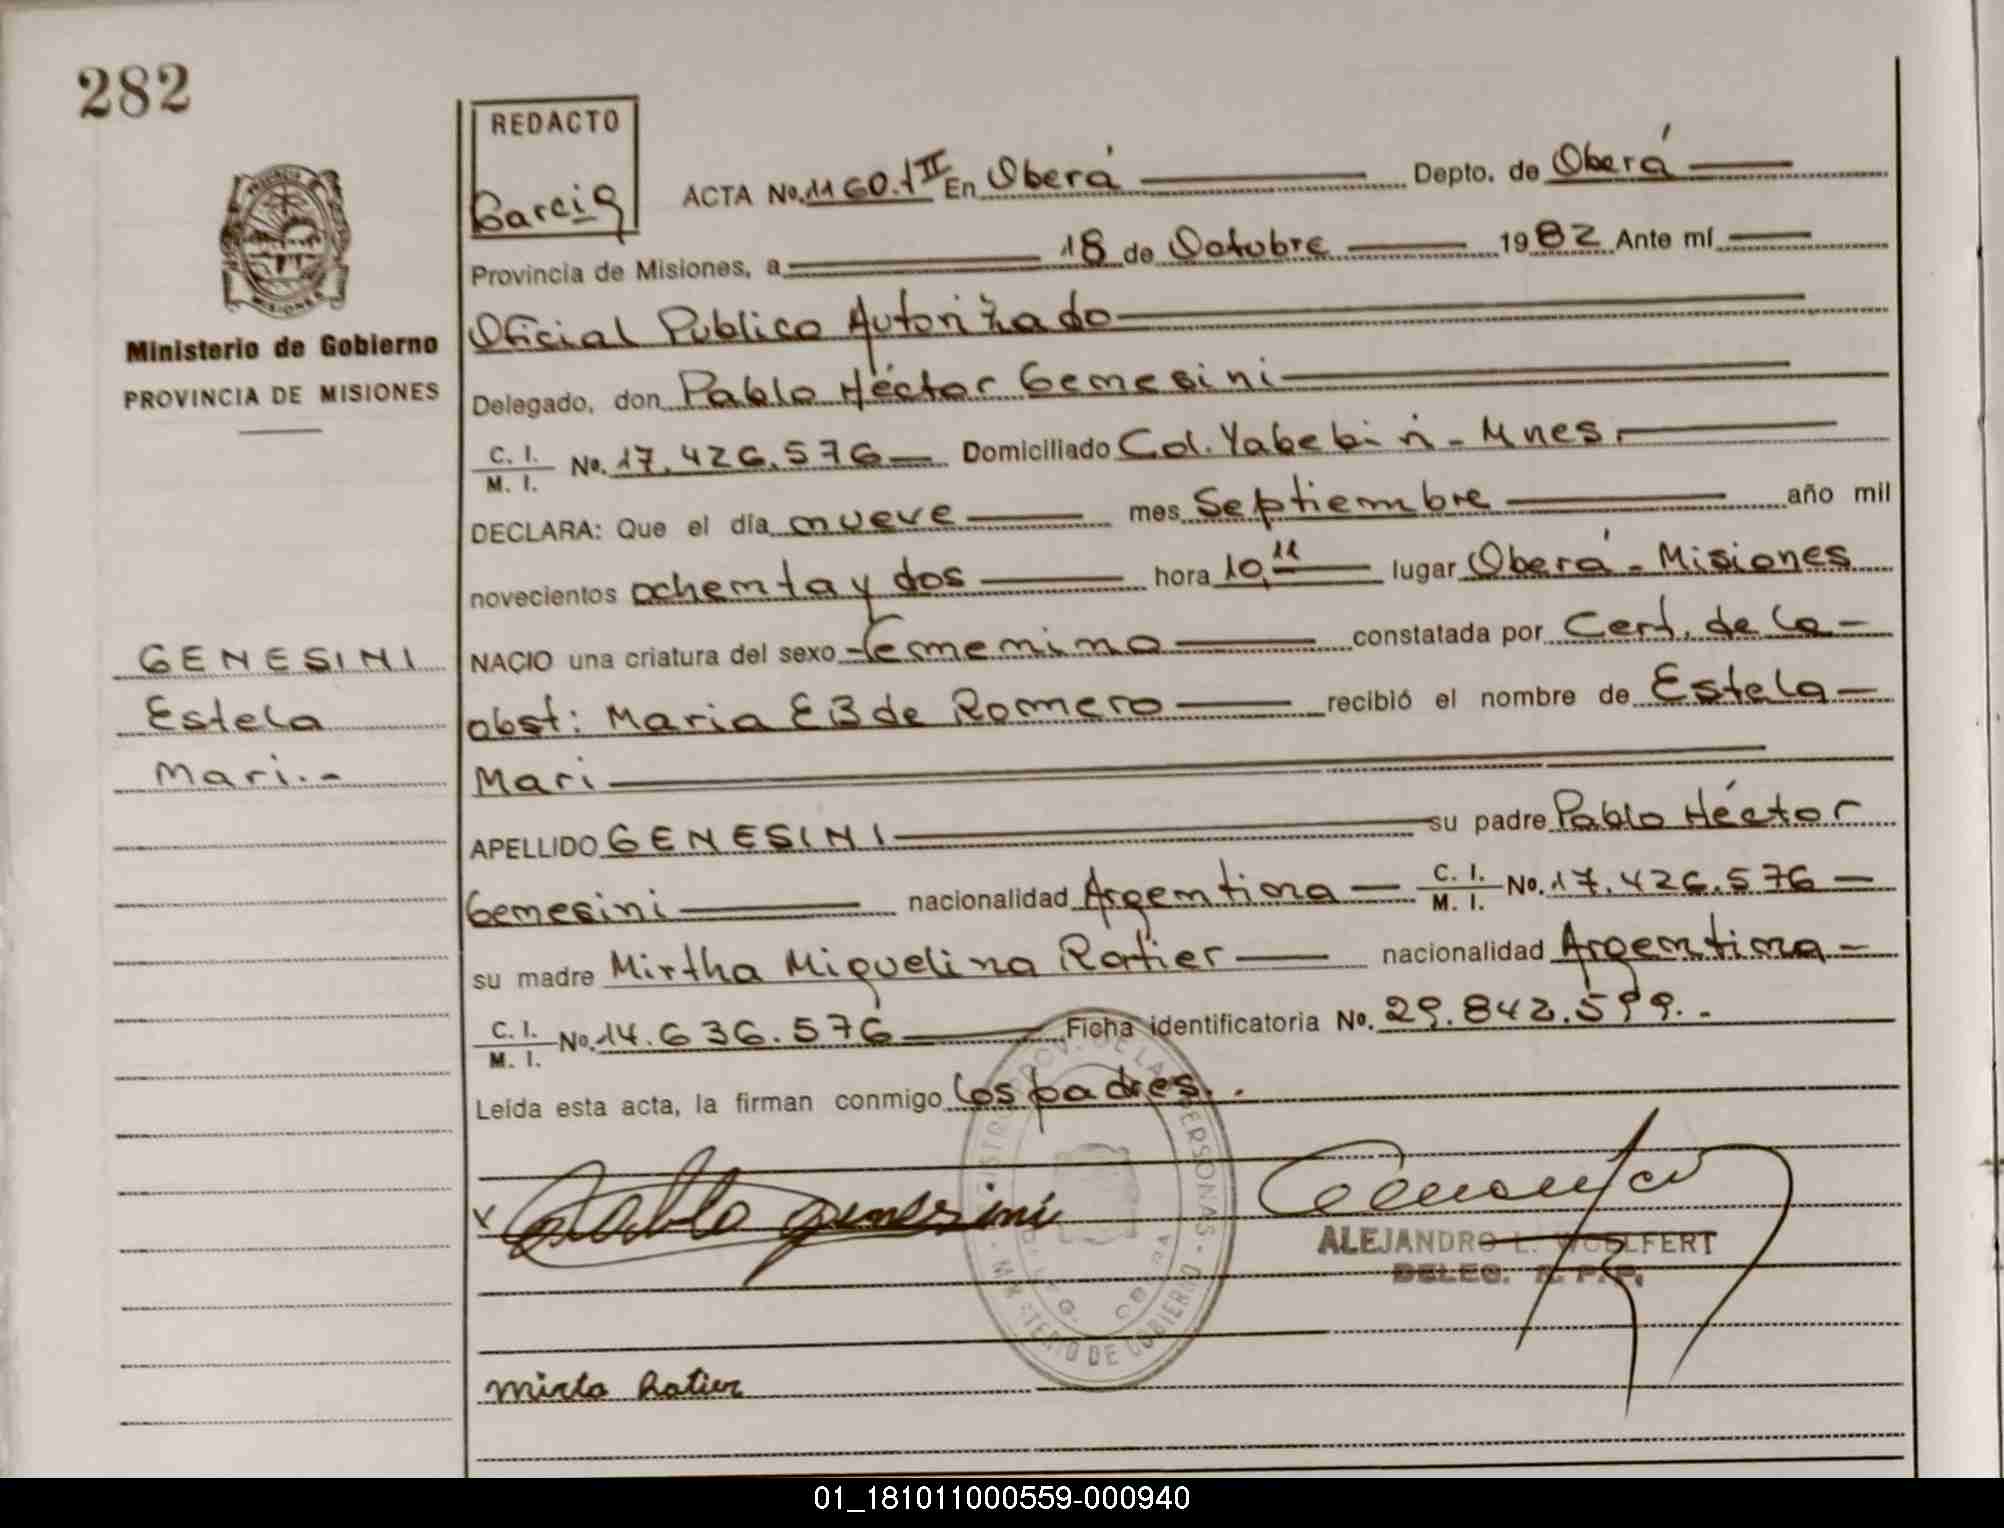 282
REDACTO
Garcia
ACTA No. 1160.tII En Oberá Depto. de Oberá
Provincia de Misiones, a 18 de Octubre 1982 Ante mí
Oficial Publico Autorizado
Ministerio de Gobierno
PROVINCIA DE MISIONES
Delegado, don Pablo Héctor Genesini
C. I. / M. I. No. 17.426.576 Domiciliado Col. Yabebiri - Mnes.
DECLARA: Que el día nueve mes Septiembre año mil
novecientos ochenta y dos hora 10,11 lugar Oberá - Misiones
NACIO una criatura del sexo femenino constatada por Cert. de la
obst: Maria E B de Romero recibió el nombre de Estela
Mari
GENESINI
Estela
Mari.-
APELLIDO GENESINI su padre Pablo Héctor
Genesini nacionalidad Argentina C. I. / M. I. No. 17.426.576
su madre Mirtha Miguelina Ratier nacionalidad Argentina
C. I. / M. I. No. 14.636.576 Ficha identificatoria No. 29.842.599.-
Leída esta acta, la firman conmigo los padres.
Pablo genesini
ALEJANDRO L. WOELFERT
DELEG. R. P. P.
MINISTERIO DE GOBIERNO
OBERA
Mirta Ratier
01_181011000559-000940